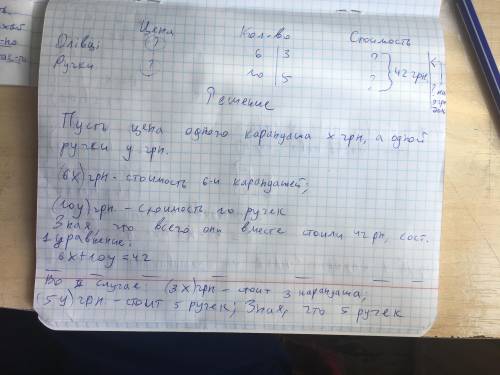 Цена Кол-во Стоимость
Олівці ? 6 3 ?
Ручки ? 10 5 ? 42 грн
Решение
Пусть цена одного карандаша x грн, а одной
ручки y грн.
(6x) грн - стоимость 6-и карандашей;
(10y) грн - стоимость 10 ручек
Зная, что всего они вместе стоили 42 грн, сост.
1 уравнение:
6x+10y=42
Во II случае (3x) грн - стоит 3 карандаша,
(5y) грн - стоит 5 ручек; Зная, что 5 ручек